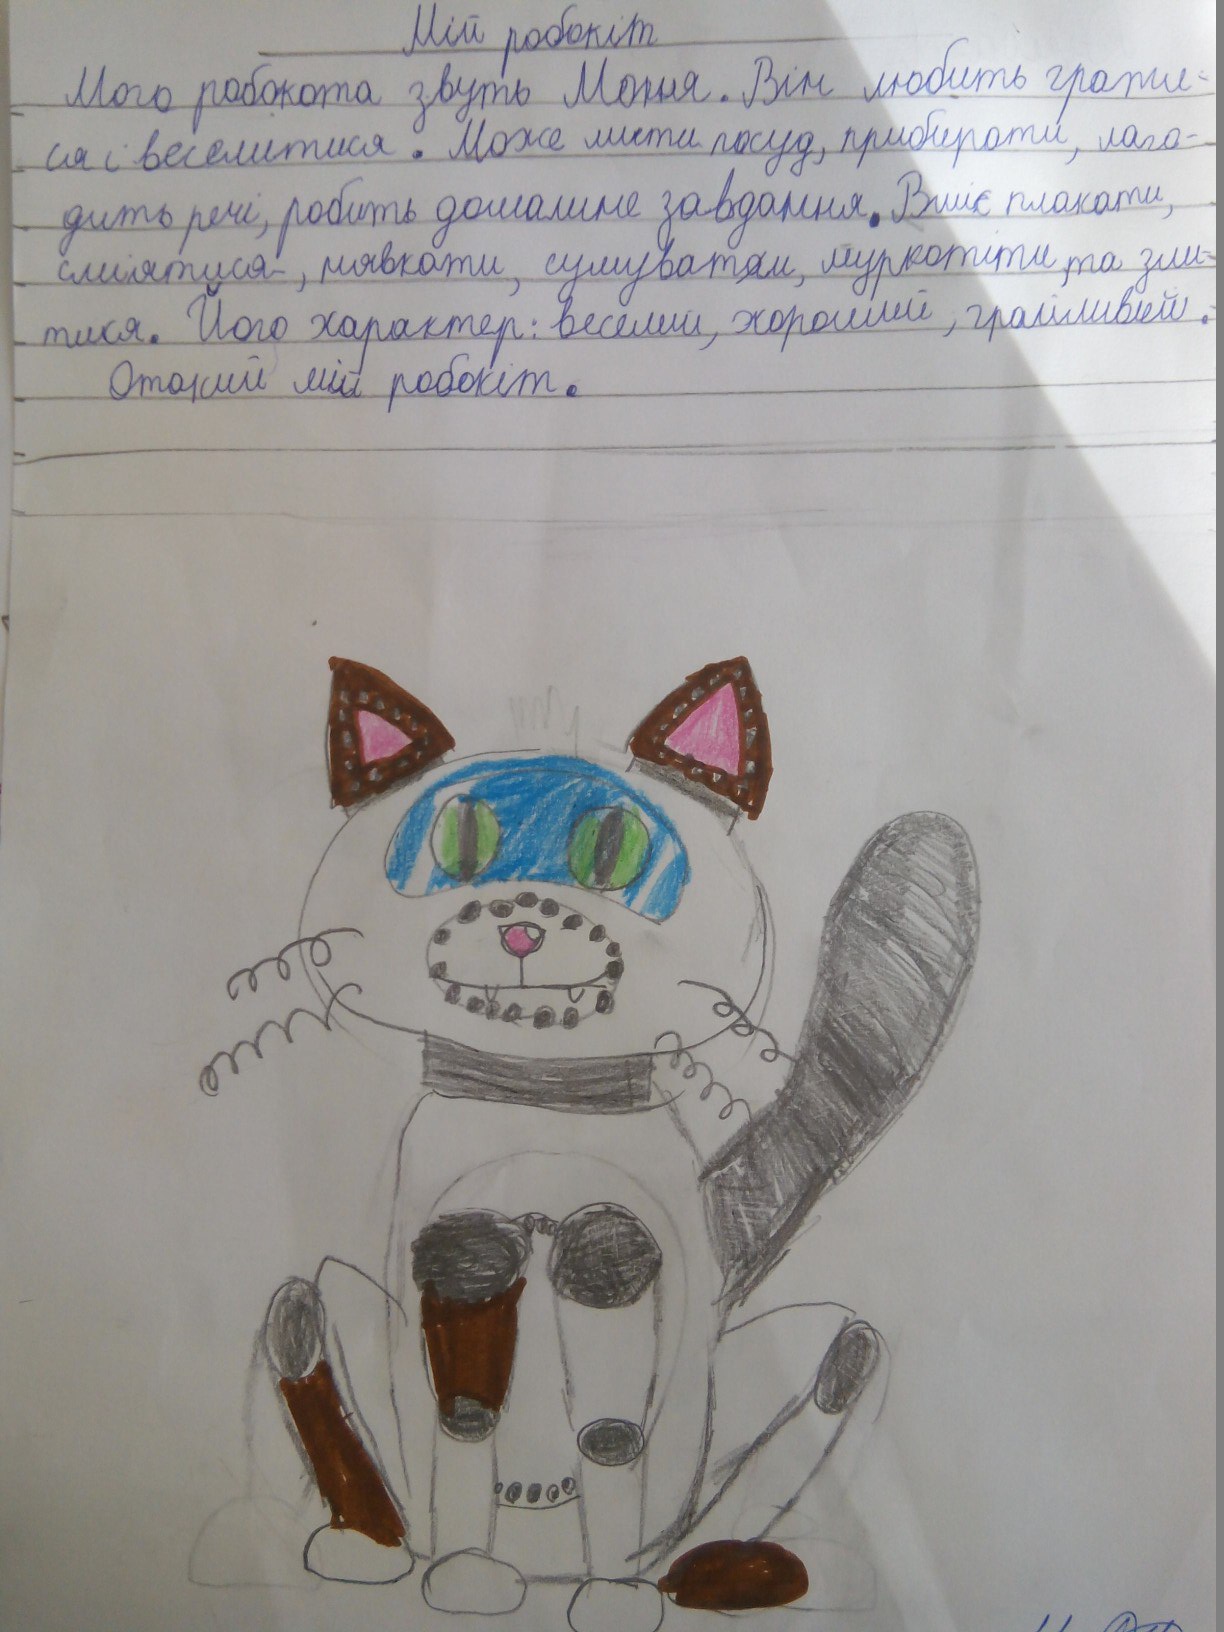 Мій робокіт
Мого робокота звуть Моня. Він любить грати-
ся і веселитися. Може мити посуд, прибирати, лаго-
дить речі, робить домашнє завдання. Вміє плакати,
сміятися, нявкати, сумувати, муркотіти та зли-
тися. Його характер: веселий, хороший, грайливий.
Отакий мій робокіт.